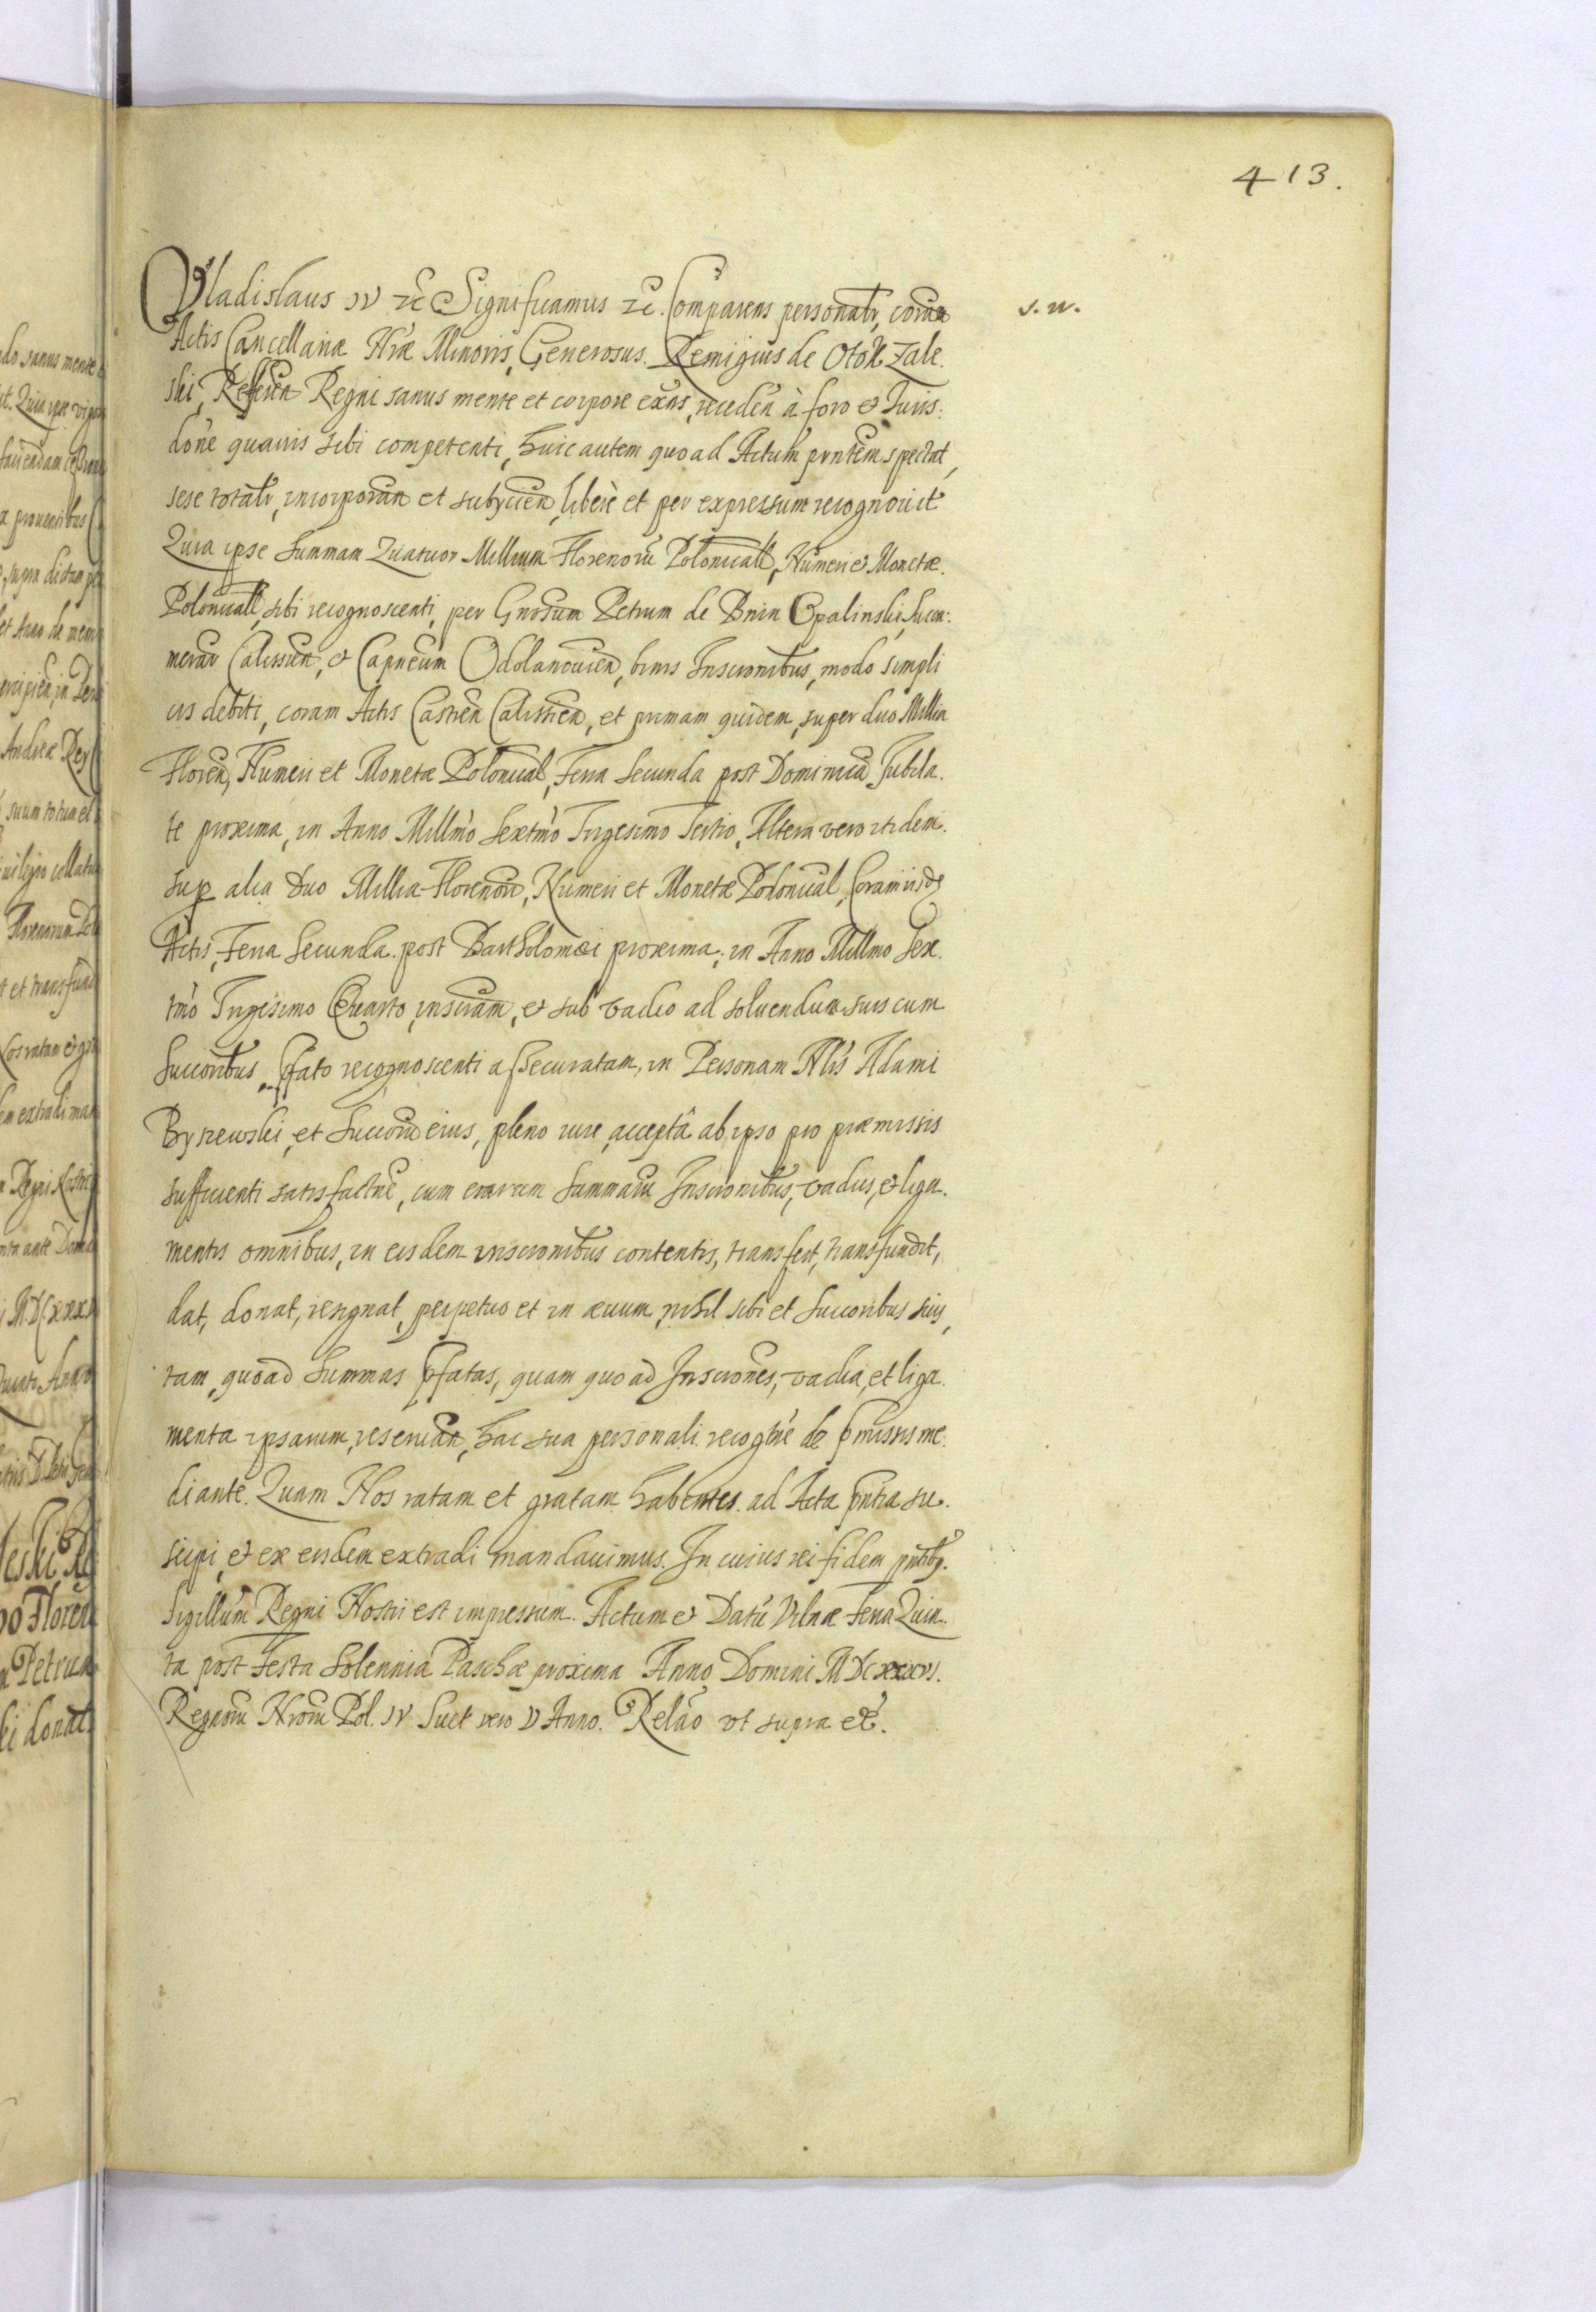 413.
Vladislaus IV etc Significamus etc. Comparens personalr, coram
s. n.
Actis Cancellariæ Nræ Minoris, Generosus. Remigius de Otok Zale.
ski, Referen Regni sanus mente et corpore exns, receden à foro et Juris:
done quauis sibi competenti, huic autem quo ad Actum prntem spectat,
sese totalr, incorporan et subijcien, liberè et per expressum recognouit
Quia ipse Summam Quatuor Millium Florenorum Polonicall, Numeri et Monetæ.
Polonicall, sibi recognoscenti, per Gnrosum Petrum de Bnin Opalinski, Succa:
merar Calissien, et Capneum Odolanouien, binis Inscronibus, modo simpli
cis debiti, coram Actis Castren Calissien, et primam quidem, super duo Millia
Floren, Numeri et Monetæ Polonical, Feria Secunda post Dominicã Jubila.
te proxima, in Anno Millmo Sextmo Trigesimo Tertio, Altera vero itidem.
Sup alia Duo Millia Florenorũ, Numeri et Monetæ Polonical, Coram iisdẽ
Actis, Feria Secunda. post Bartholomæi proxima, in Anno Millmo Sex.
tmo Trigesimo Quarto, inscram, et sub vadio ad soluendum suis cum
Succoribus pfato recognoscenti assecuratam, in Personam Nlis Adami
Byszewski, et Succorũ eius, pleno iure, acceptâ ab ipso pro præmissis
sufficienti satisfactne, cum earum Summarũ Inscronibus, vadiis, et liga.
mentis omnibus, in eisdem inscronibus contentis, transfert, transfundit,
dat, donat, resignat, perpetuo et in æuum, nihil sibi et Succoribus suis,
tam quoad Summas pfatas, quam quo ad Inscrones, vadia, et liga.
menta ipsarum, reseruan, hac sua personali recogtne de pmissis me.
diante. Quam Nos ratam et gratam habentes. ad Acta pntia su.
scipi, et ex eisdem extradi mandauimus. In cuius rei fidem pntibg.
Sigillum Regni Nostri est impressum. Actum et Datũ Vilnæ Feria Quin.
ta post Festa Solennia Paschæ proxima Anno Domini MDCXXXVI.
Regnorũ Nrorũ Pol. IV Suet vero V Anno. Relão vt supra etc.